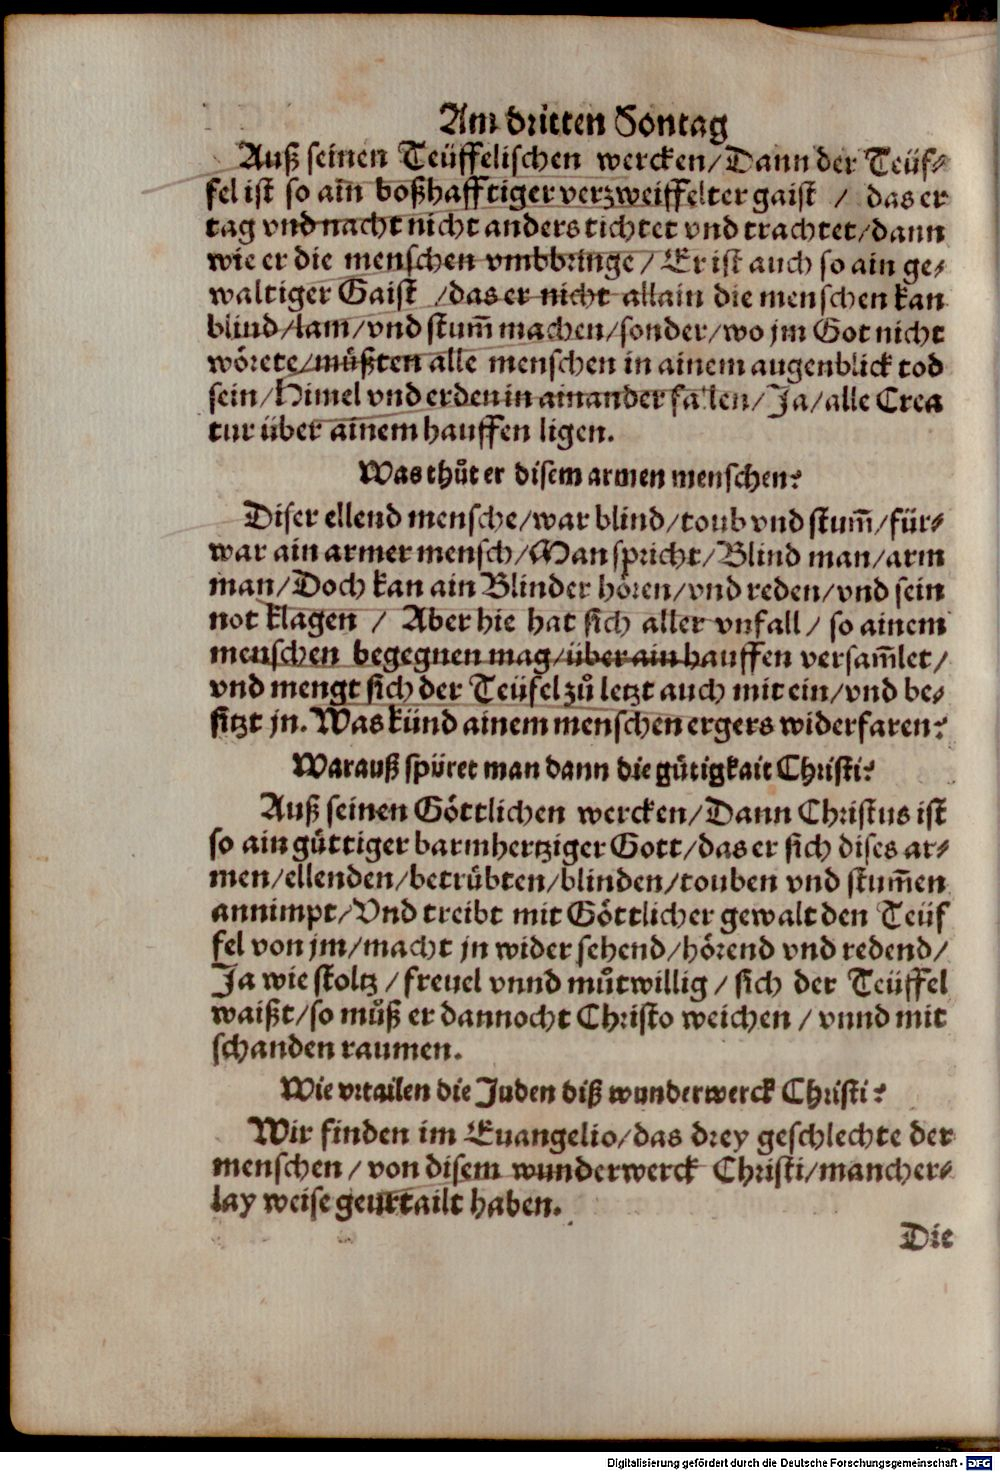 Am dritten Sontag
Auß seinen Teüffelischen wercken/Dann der Teüf-
fel ist so ain boßhafftiger verzweiffelter gaist / das er
tag vnd nacht nicht anders tichtet vnd trachtet/dann
wie er die menschen vmbbringe / Er ist auch so ain ge-
waltiger Gaist /das er nicht allain die menschen kan
blind/lam/vnd stum̄ machen/sonder/wo jm Got nicht
wörete/müßten alle menschen in ainem augenblick tod
sein/Himel vnd erden in ainander fallen/Ja/alle Crea
tur über ainem hauffen ligen.
Was thůt er disem armen menschen?
Diser ellend mensche/war blind/toub vnd stum̄/für-
war ain armer mensch/Man spricht/Blind man/arm
man/Doch kan ain Blinder hören/vnd reden/vnd sein
not klagen / Aber hie hat sich aller vnfall/ so ainem
menschen begegnen mag/über ain hauffen versam̄let/
vnd mengt sich der Teüfel zů letzt auch mit ein/vnd be-
sitzt jn. Was künd ainem menschen ergers widerfaren?
Warauß spüret man dann die gütigkait Christi?
Auß seinen Göttlichen wercken/Dann Christus ist
so ain güttiger barmhertziger Gott/das er sich dises ar-
men/ellenden/betrübten/blinden/touben vnd stum̄en
annimpt/Vnd treibt mit Göttlicher gewalt den Teüf
fel von jm/macht jn wider sehend/hörend vnd redend/
Ja wie stoltz/freuel vnnd můtwillig/sich der Teüffel
waißt/so můß er dannocht Christo weichen / vnnd mit
schanden raumen.
Wie vrtailen die Juden diß wunderwerck Christi?
Wir finden im Euangelio/das drey geschlechte der
menschen / von disem wunderwerck Christi/mancher-
lay weise geurtailt haben.
Die
Digitalisierung gefördert durch die Deutsche Forschungsgemeinschaft - DFG